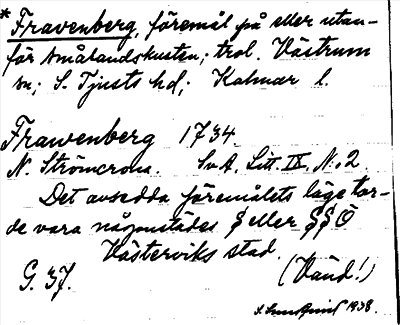 * Fravenberg, föremål på eller utan-
för Smålandskusten; trol. Västrum
sn; S. Tjusts hd; Kalmar l.
Frawenberg 1734.
N. Strömcrona. SvA. Litt. IX. N:o 2.
Det avsedda föremålets läge tor-
de vara någonstädes § eller §§ Ö
Västerviks stad.
G. 37.
(Vänd!)
1938.